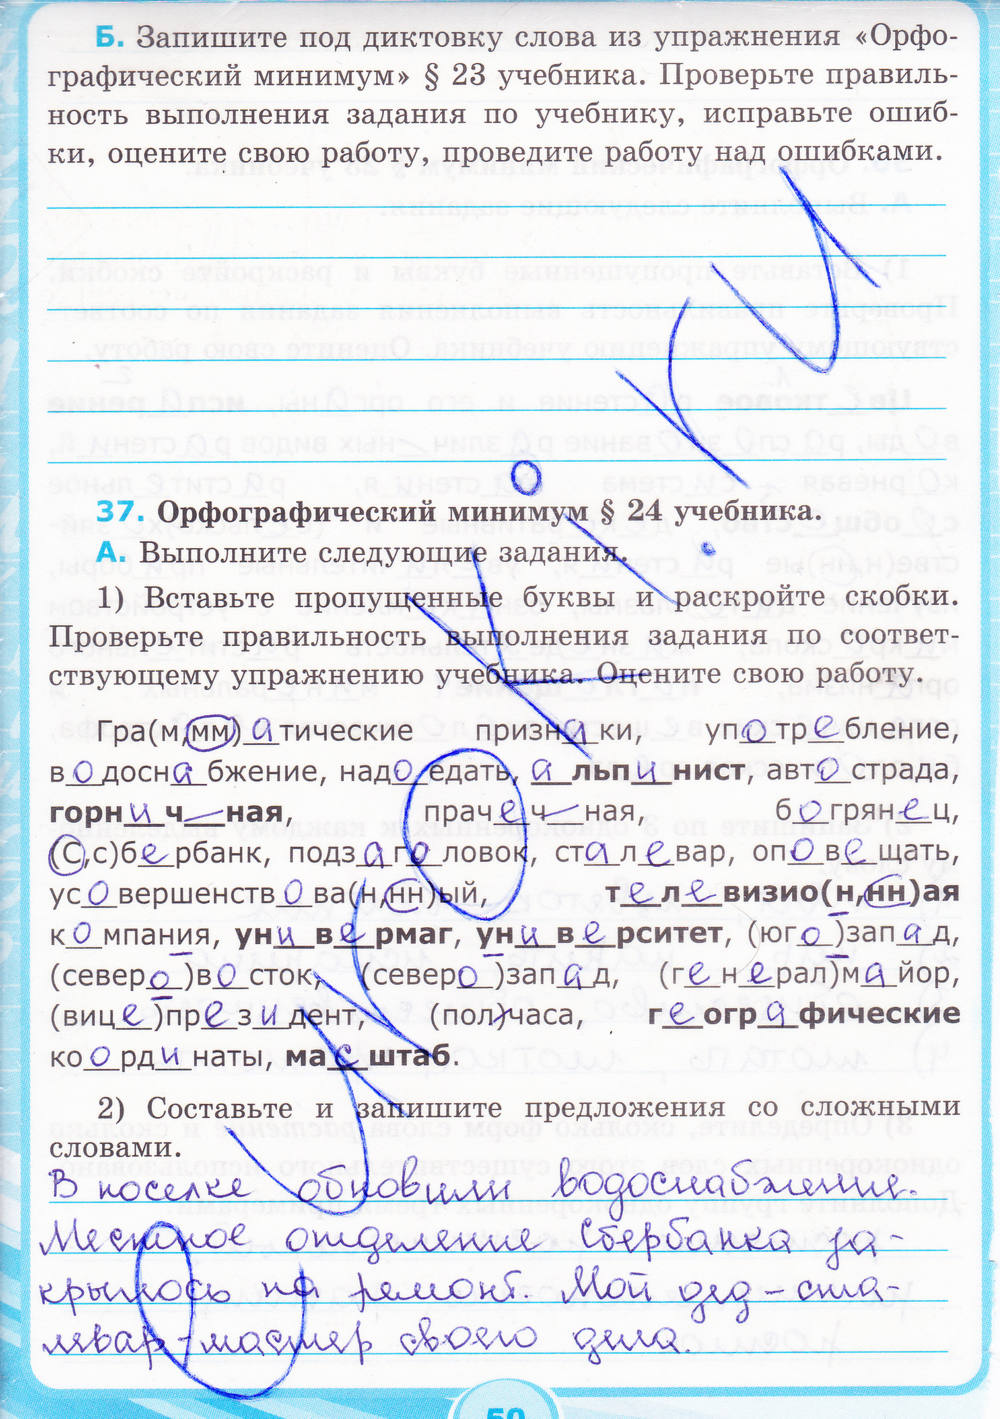 Б. Запишите под диктовку слова из упражнения «Орфо-
графический минимум» § 23 учебника. Проверьте правиль-
ность выполнения задания по учебнику, исправьте ошиб-
ки, оцените свою работу, проведите работу над ошибками.
37. Орфографический минимум § 24 учебника.
А. Выполните следующие задания.
1) Вставьте пропущенные буквы и раскройте скобки.
Проверьте правильность выполнения задания по соответ-
ствующему упражнению учебника. Оцените свою работу.
Гра(м,мм)атические признаки, употребление,
водоснабжение, надоедать, альпинист, автострада,
горничная, прачечная, багрянец,
(С,с)бербанк, подзаголовок, сталевар, оповещать,
усовершенствова(н,нн)ый, телевизио(н,нн)ая
компания, универмаг, университет, (юго)запад,
(северо)восток, (северо)запад, (генерал)майор,
(вице)президент, (пол)часа, географические
координаты, масштаб.
2) Составьте и запишите предложения со сложными
словами.
В поселке обновили водоснабжение.
Местное отделение Сбербанка за-
крылось на ремонт. Мой дед-ста-
левар-мастер своего дела.
50